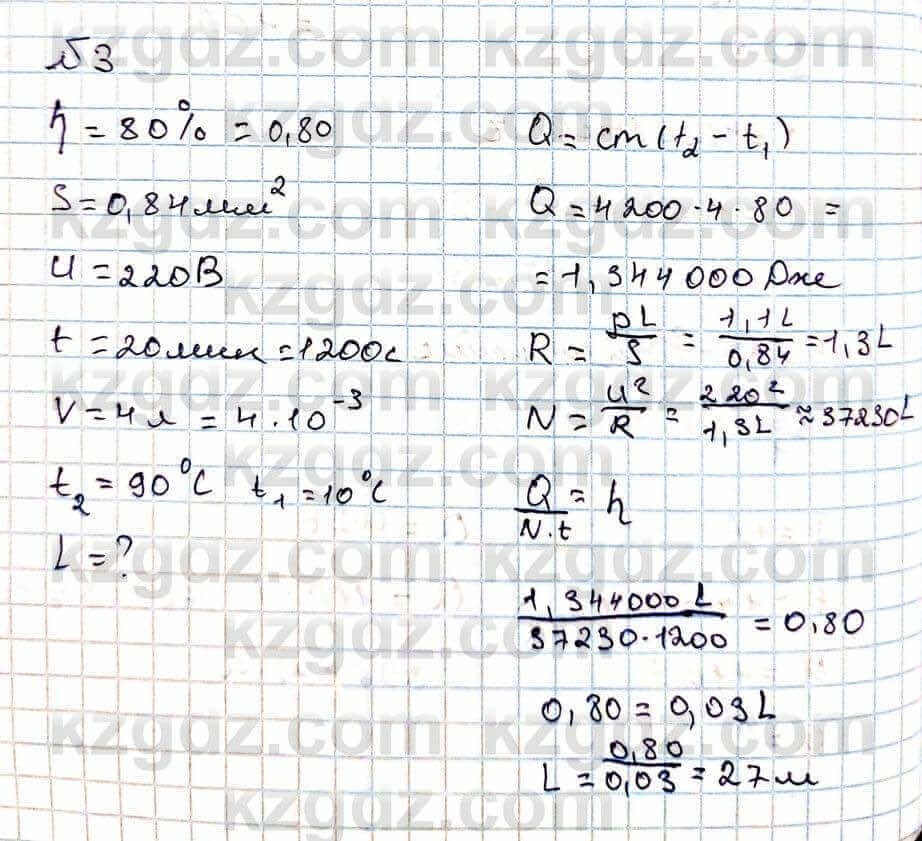 №3
η = 80% = 0,80
S = 0,84 мм²
U = 220В
t = 20 мин = 1200с
V = 4 л = 4 · 10⁻³
t₂ = 90°C t₁ = 10°C
L = ?
Q = cm(t₂ - t₁)
Q = 4200 · 4 · 80 =
= 1,344000 Дж
R = ρL/S = 1,1L/0,84 = 1,3L
N = U²/R = 220²/1,3L ≈ 37230L
Q/N·t = η
1,344000L/37230·1200 = 0,80
0,80 = 0,03L
L = 0,80/0,03 = 27м
kzgdz.com